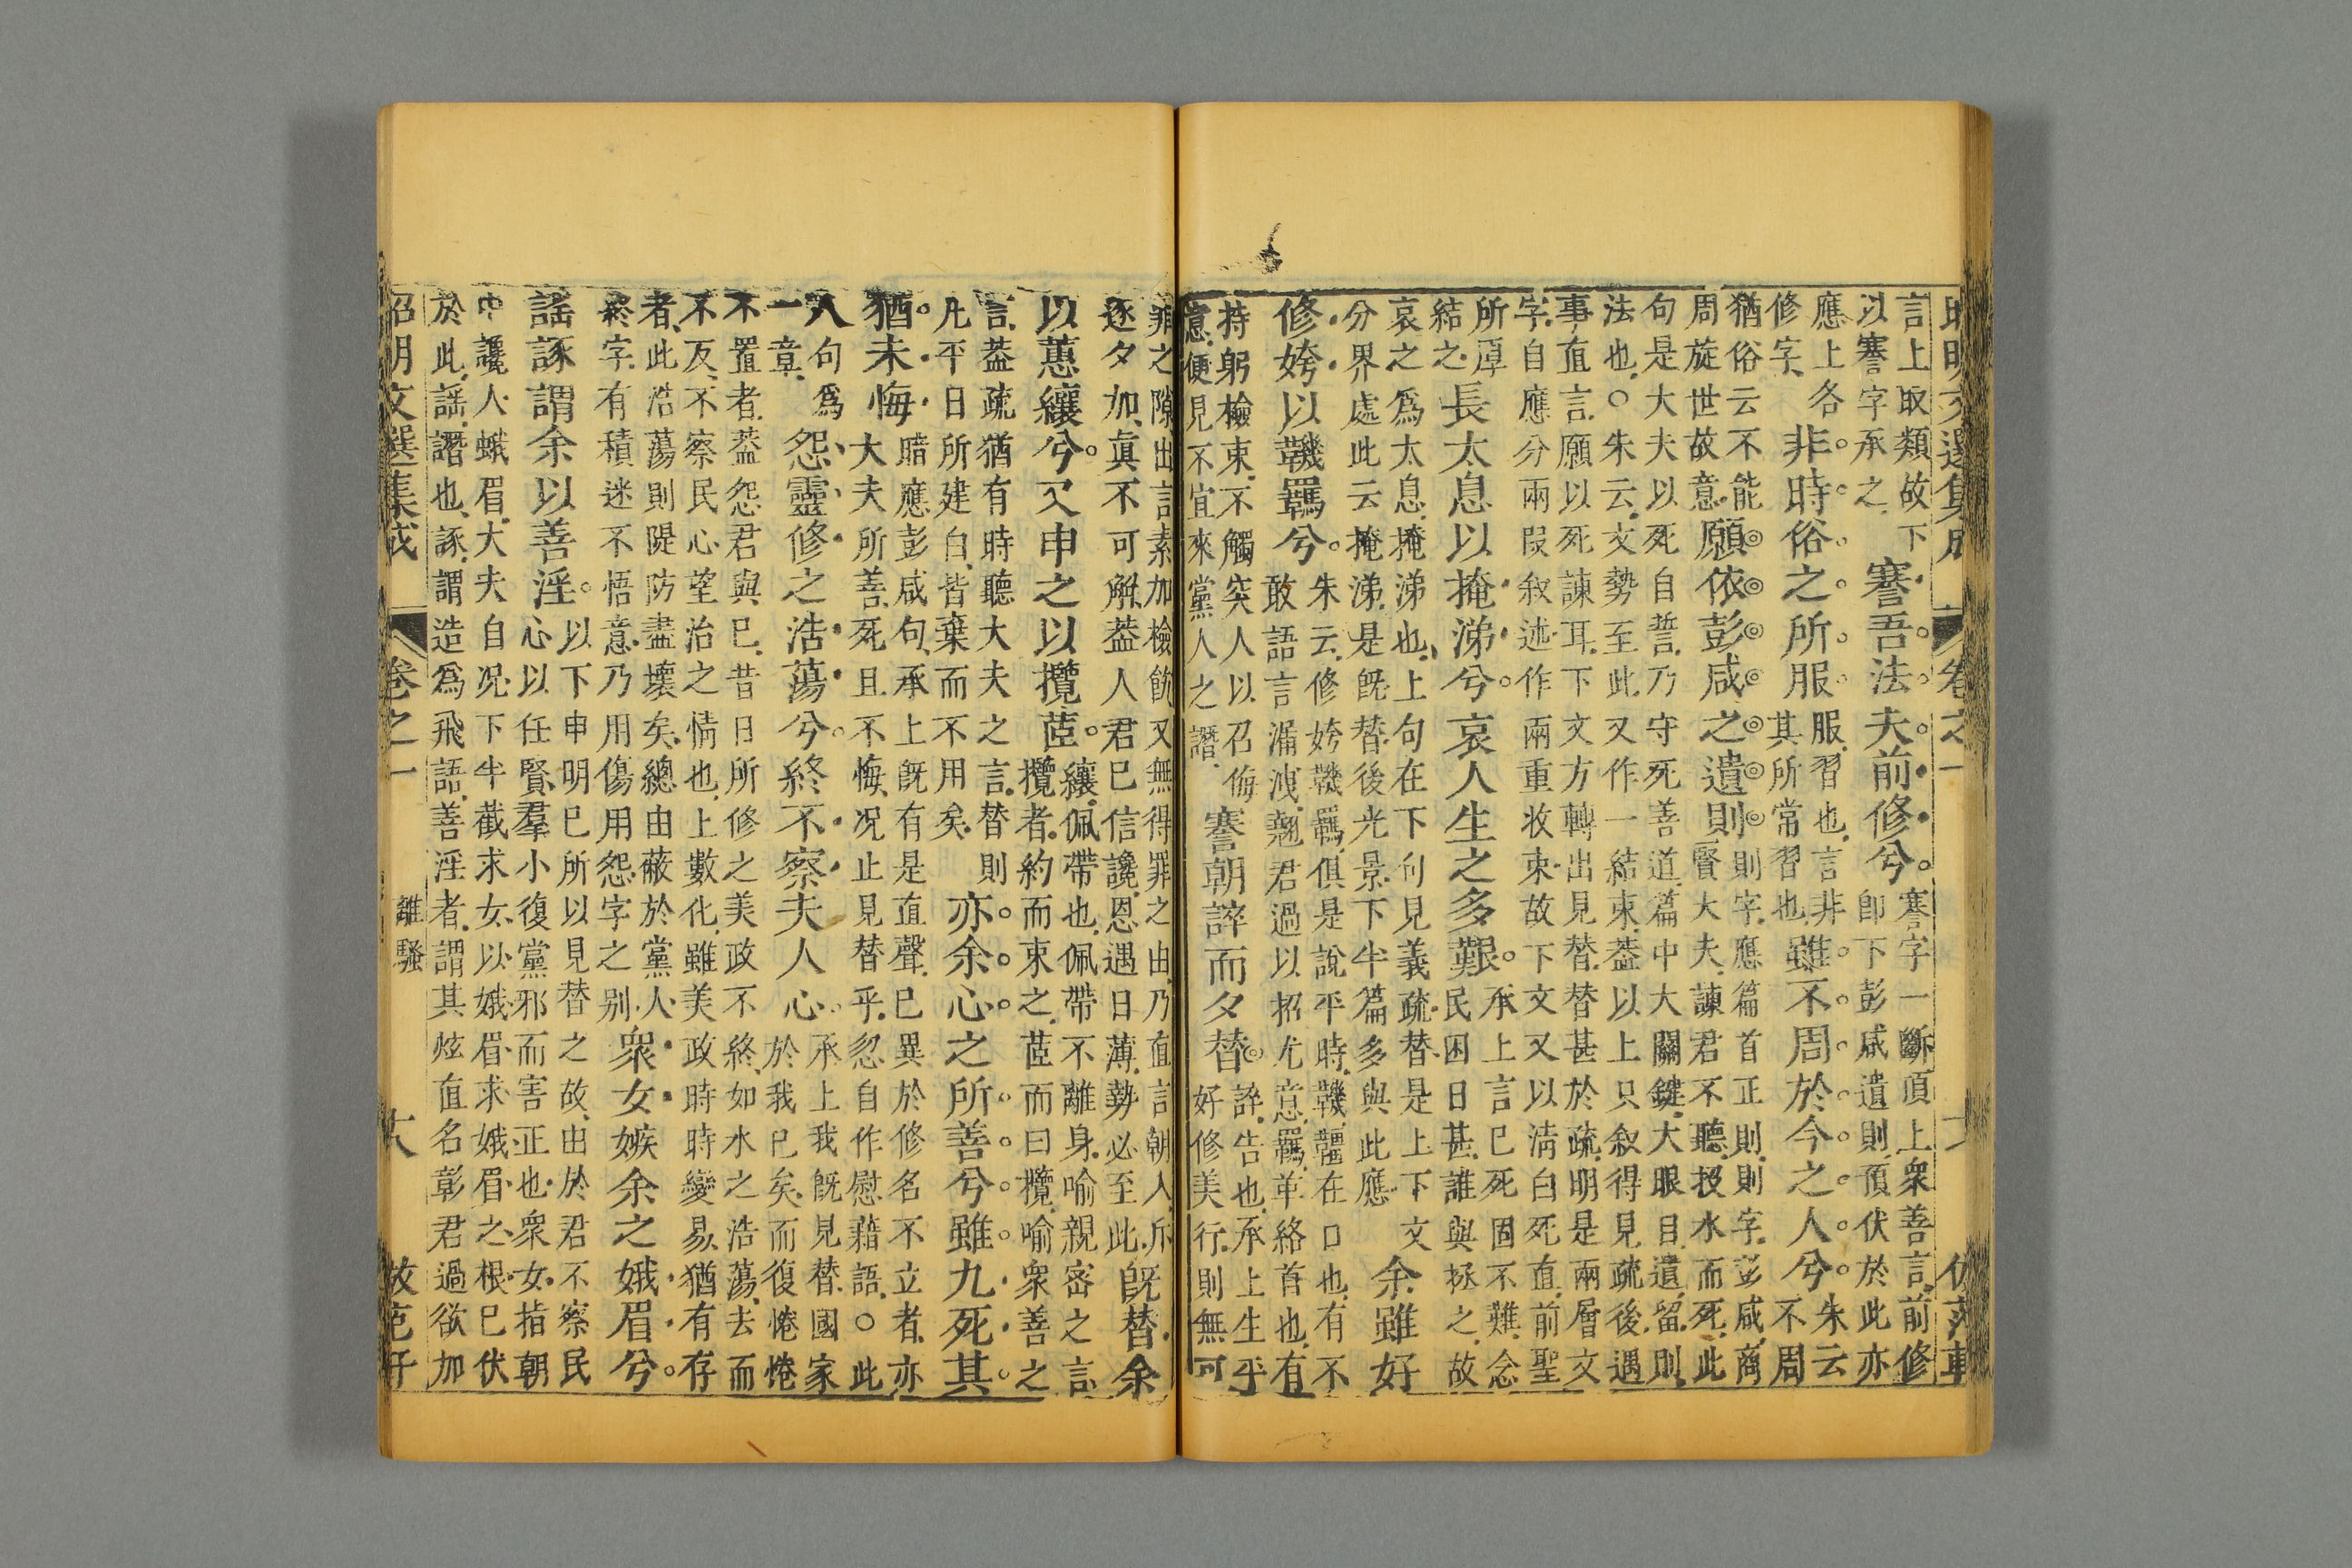 昭明文選集成 卷之一
言上取類故下
以謇字承之
謇吾法夫前修兮
謇字一斷頂上衆善言前修
卽下彭咸遺則預伏於此亦
應上各
修字
非時俗之所服
服習也言非
其所常習也
雖不周於今之人兮
朱云
不周
猶俗云不能
周旋世故意
願依彭咸之遺則
則字應篇首正則則字彭咸商
賢大夫諫君不聽投水而死此
句是大夫以死自誓乃守死善道篇中大關鍵大眼目遺留則
法也○朱云文勢至此又作一結束葢以上只敘得見疏後遇
事直言願以死諫耳下文方轉出見替替甚於疏明是兩層文
字自應分兩段敘述作兩重收束故下文又以淸白死直前聖
所厚
結之
長太息以掩涕兮哀人生之多艱
承上言已死固不難念
民困日甚誰與拯之故
哀之爲太息掩涕也上句在下句見義疏替是上下文
分界處此云掩涕是旣替後光景下半篇多與此應
余雖好
修姱以鞿羈兮
朱云修姱鞿羈俱是說平時鞿韁在口也有不
敢語言漏洩𧫴君過以招尤意羈革絡首也有
持躬檢束不觸突人以召侮
意便見不宜來黨人之譖
謇朝誶而夕替
誶告也承上生平
好修美行則無可
罪之隙出言素加檢飭又無得罪之由乃直言朝入斥
逐夕加眞不可解葢人君已信讒恩遇日薄勢必至此
旣替余
以蕙纕兮又申之以攬茝
纕佩帶也佩帶不離身喻親密之言
攬者約而束之茝而曰攬喻衆善之
言葢疏猶有時聽大夫之言替則
凡平日所建白皆棄而不用矣
亦余心之所善兮雖九死其
猶未悔
暗應彭咸句承上旣有是直聲已異於修名不立者亦
大夫所善死且不悔况止見替乎忽自作慰藉語○此
八句爲
一章
怨靈修之浩蕩兮終不察夫人心
承上我旣見替國家
於我已矣而復惓惓
不置者葢怨君與已昔日所修之美政不終如水之浩蕩去而
不反不察民心望治之情也上數化雖美政時時變易猶有存
者此浩蕩則隄防盡壞矣總由蔽於黨人
終字有積迷不悟意乃用傷用怨字之別
衆女嫉余之娥眉兮
謠諑謂余以善淫
以下申明已所以見替之故由於君不察民
心以任賢羣小復黨邪而害正也衆女指朝
中讒人蛾眉大夫自况下半截求女以娥眉求娥眉之根已伏
於此謠譖也諑謂造爲飛語善淫者謂其炫直名彰君過欲加
昭明文選集成 卷之一 離騷 六 倣范軒